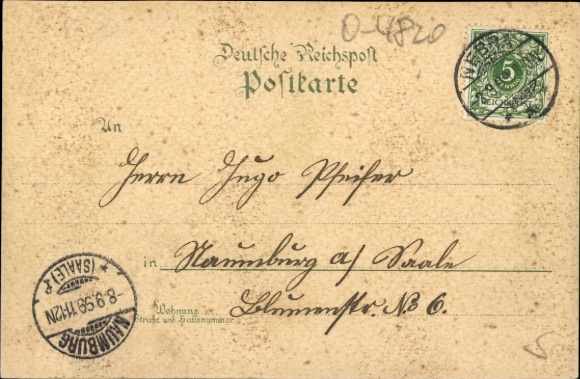 O-4820
Deutsche Reichspost
Postkarte
NEBRA
5
REICHSPOST
An
Herrn Hugo Pfeifer
in Naumburg a/ Saale
Wohnung
Straße und Hausnummer
Blumenstr. No 6.
* (SAALE) f
8.9.99.1112N
NAUMBURG